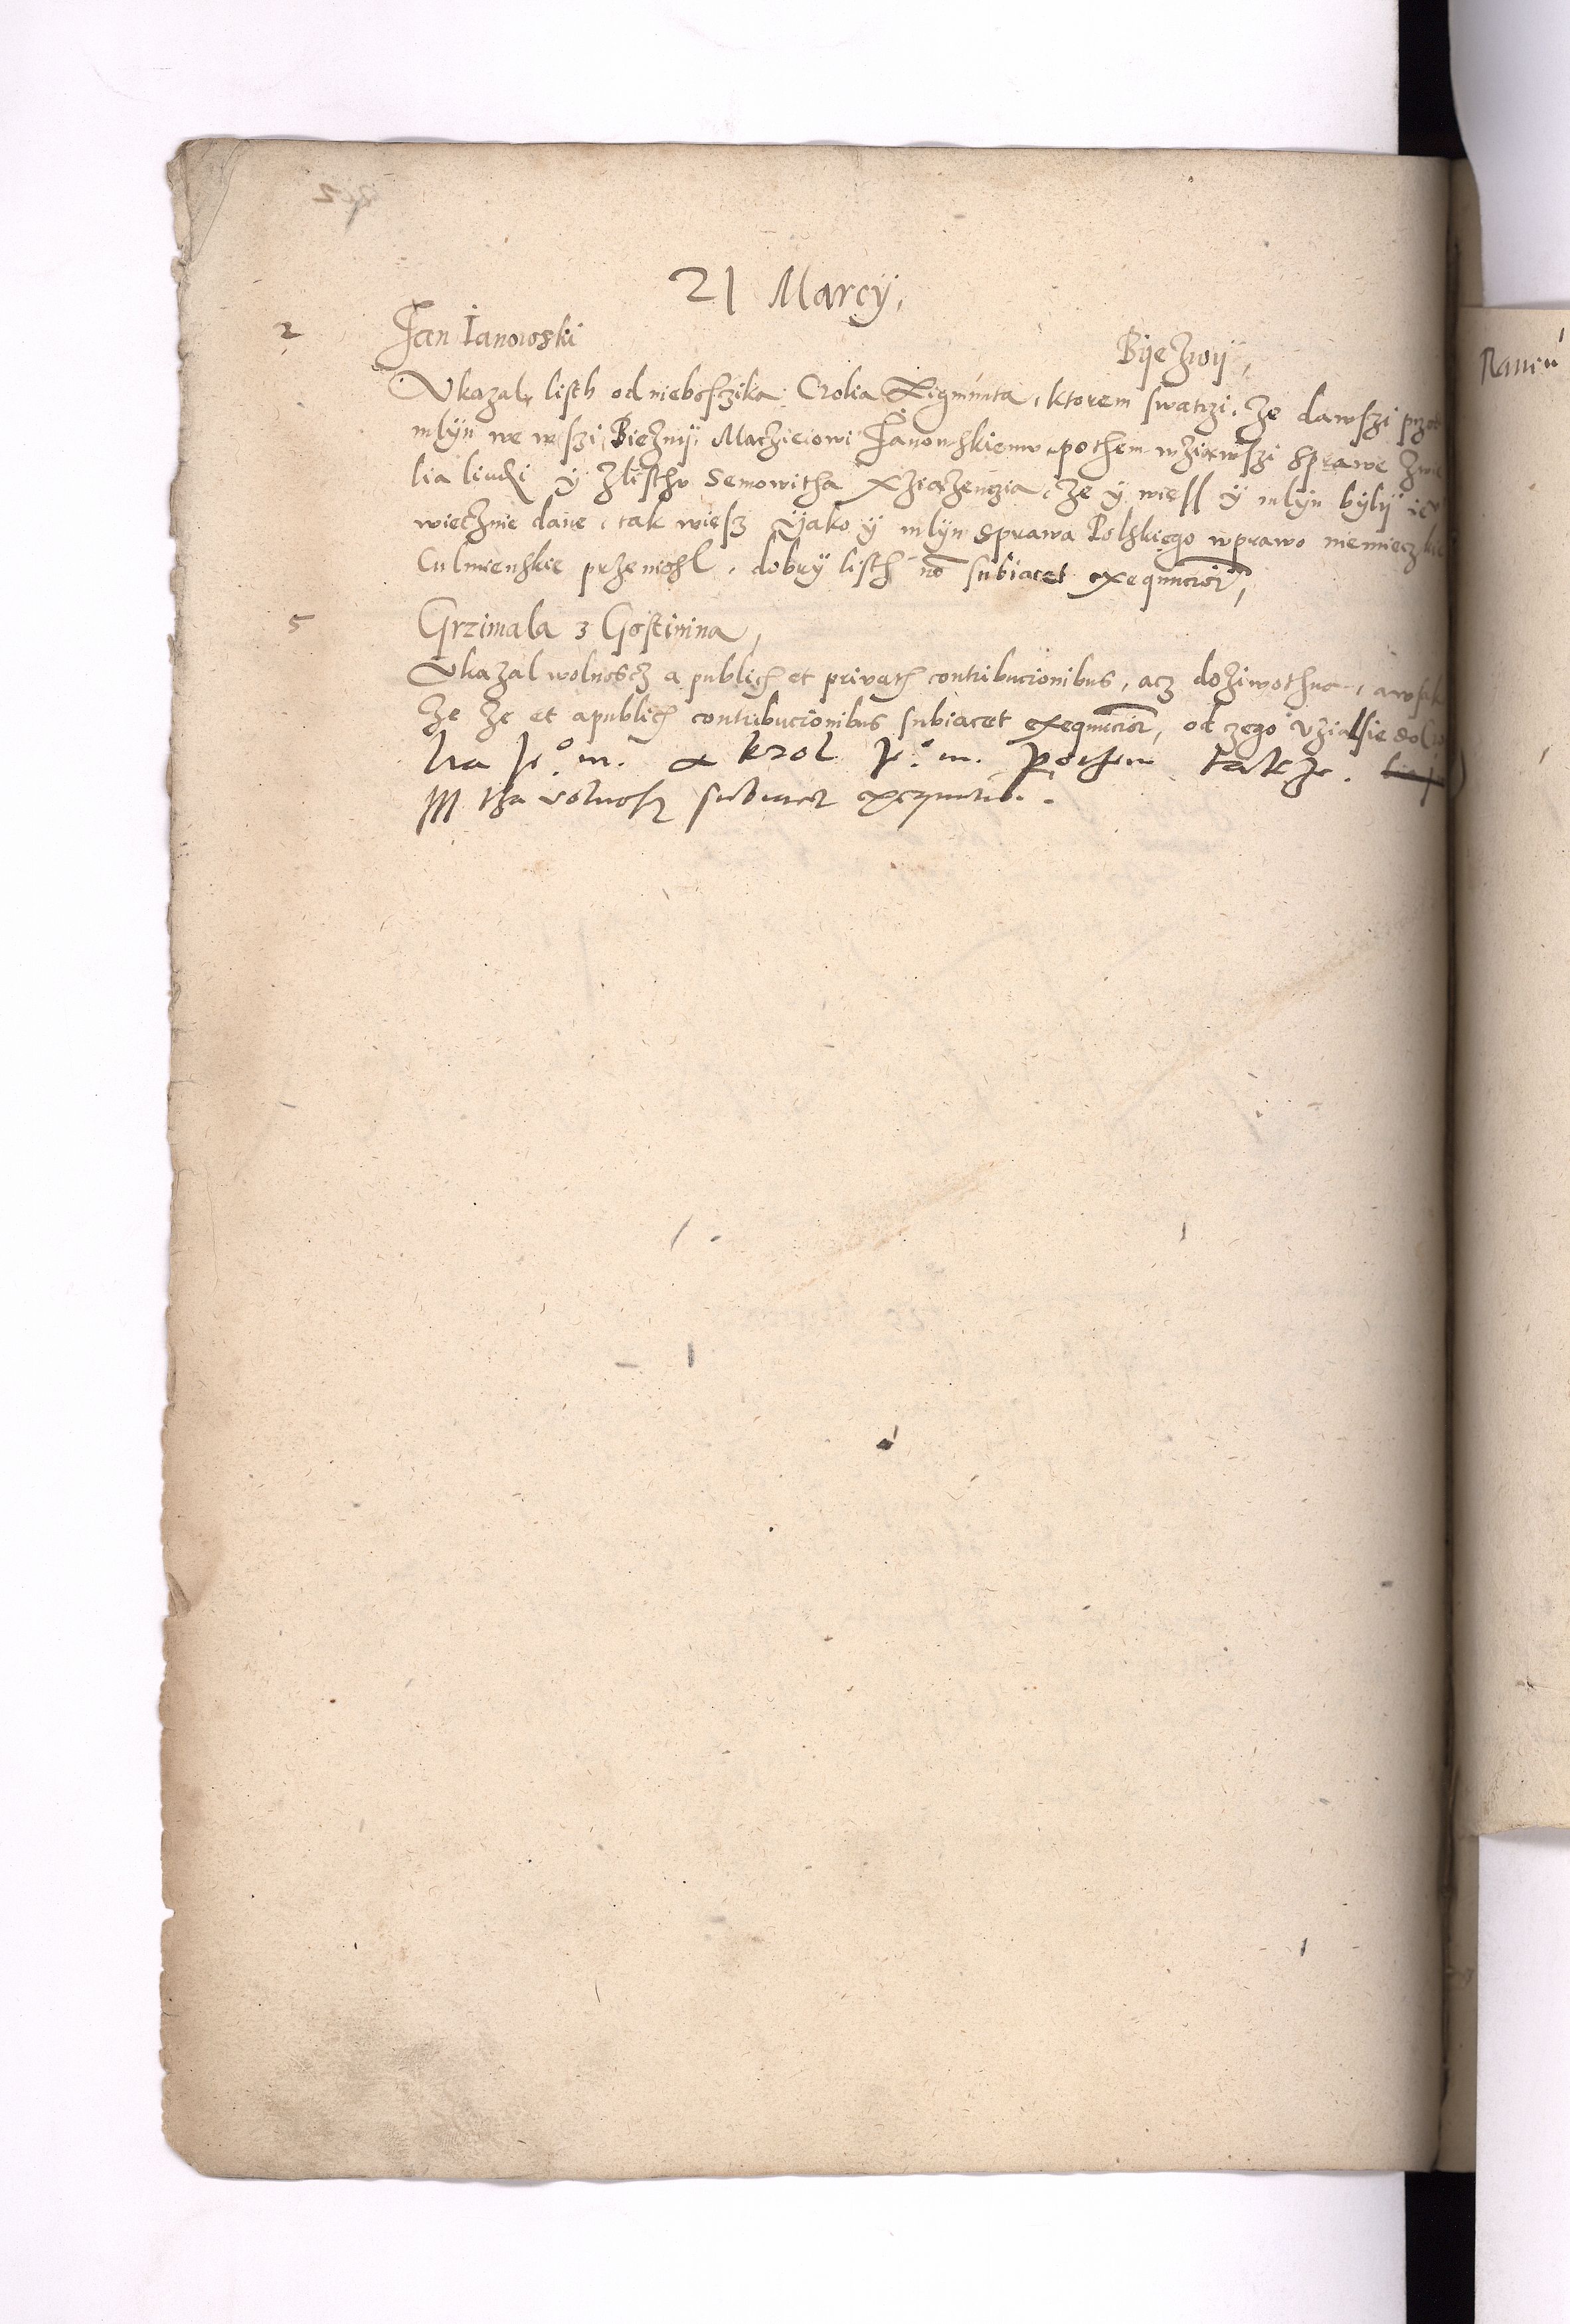 21 Marcÿ,
2 Jan Janowski Bÿeżwÿ,
Vkazal listh od niebosczika Crolia Zigmunta, ktorem swatczi, że dawszi przod
mlÿn we wszi Bieżwÿ Maczieiowi Janowskiemu, pothem wżiawszi sprawe
lia liudzi ÿ z listhu Semowitha Xżiażenczia, że ÿ wiess ÿ mlÿn bÿlÿ
wiecżnie dane, tak wiesz ÿako ÿ mlÿn sprawa Polskiego wprawo niemieczkie
Culmienskie przeniosl, dobrÿ listh nō subiacet exequucioī,
5 Grzimala z Gostinina,
Vkazal wolnoscz a publicis et privatis contribucionibus, acz dożiwothna, awsak
że że et a publicis contribucionibus subiacet exequucioī, od czego vzial sie do Cro
lia Je° m. a krol Je° m. pothem także.
tha volnoscz subiacet exequutioī.
Ranciu